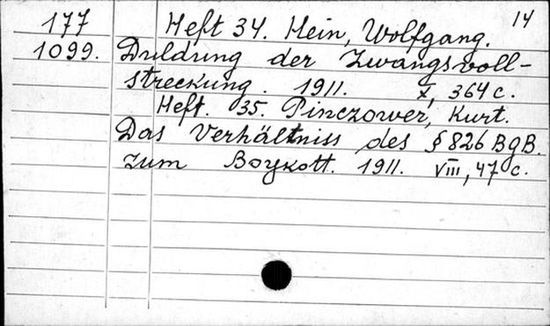 14
177 Heft 34. Hein, Wolfgang.
1099. Duldung der Zwangsvoll-
streckung. 1911. X, 364 c.
Heft. 35. Pinczower, Kurt.
Das Verhältniss des § 826 BgB.
zum Boykott. 1911. VIII, 47 c.